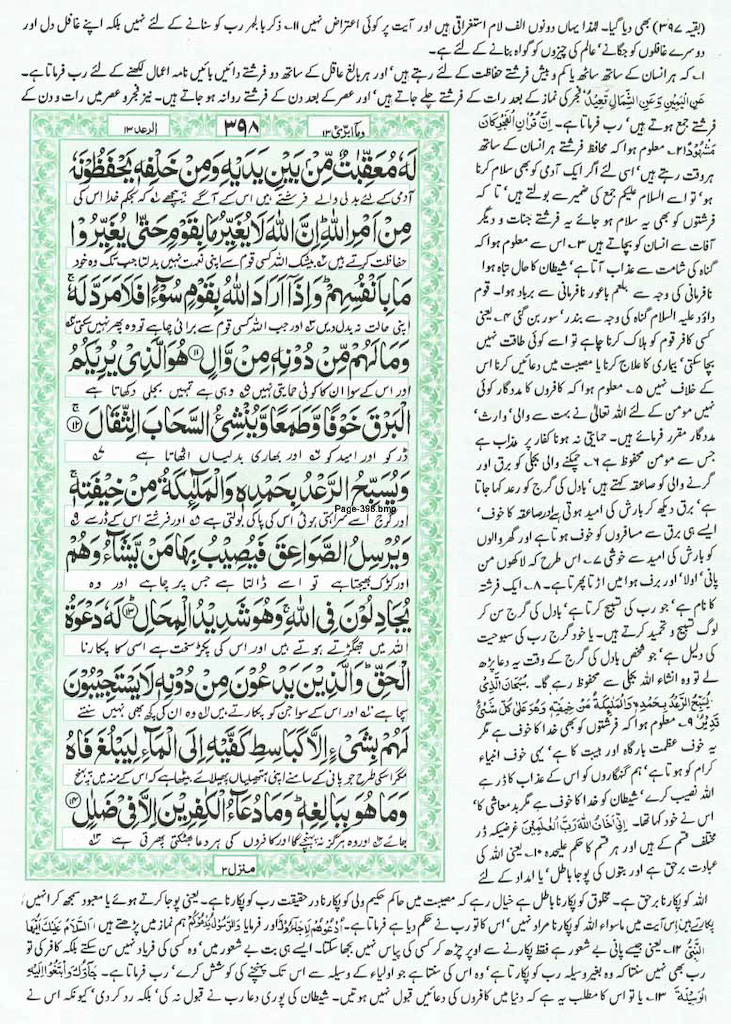 (بقیہ ۳۹۷) بھی دیا گیا۔ لہٰذا یہاں دونوں الف لام استغراقی ہیں اور آیت پر کوئی اعتراض نہیں ۱۱۔ ذکر بالجہر رب کو سنانے کے لئے نہیں بلکہ اپنے غافل دل اور
دوسرے غافلوں کو جگانے' عالم کی چیزوں کو گواہ بنانے کے لئے ہے۔
۱۔ کہ ہر انسان کے ساتھ ساٹھ یا کم و بیش فرشتے حفاظت کے لئے رہتے ہیں' اور ہر بالغ عاقل کے ساتھ دو فرشتے دائیں بائیں نامہ اعمال لکھنے کے لئے رب فرماتا ہے۔
عَنِ الْيَمِيْنِ وَعَنِ الشِّمَالِ قَعِيْدٌ فجر کی نماز کے بعد رات کے فرشتے چلے جاتے ہیں' اور عصر کے بعد دن کے فرشتے روانہ ہو جاتے ہیں۔ نیز فجر و عصر میں رات و دن کے
وما ابرئ ۱۳
۳۹۸
الرعد ۱۳
لَهٗ مُعَقِّبٰتٌ مِّنْۢ بَيْنِ يَدَيْهِ وَمِنْ خَلْفِهٖ يَحْفَظُوْنَهٗ
آدمی کے لئے بدلی والے فرشتے ہیں اس کے آگے پیچھے کہ بحکم خدا اس کی
مِنْ اَمْرِ اللّٰهِ ؕ اِنَّ اللّٰهَ لَا يُغَيِّرُ مَا بِقَوْمٍ حَتّٰى يُغَيِّرُوْا
حفاظت کرتے ہیں بیشک اللہ کسی قوم سے اپنی نعمت نہیں بدلتا جب تک وہ خود
مَا بِاَنْفُسِهِمْ ؕ وَاِذَاۤ اَرَادَ اللّٰهُ بِقَوْمٍ سُوْٓءًا فَلَا مَرَدَّ لَهٗ ۚ
اپنی حالت نہ بدل دیں اور جب اللہ کسی قوم سے برائی چاہے تو وہ پھر نہیں سکتی
وَمَا لَهُمْ مِّنْ دُوْنِهٖ مِنْ وَّالٍ ﴿۱۱﴾ هُوَ الَّذِيْ يُرِيْكُمُ
اور اس کے سوا ان کا کوئی حمایتی نہیں وہی ہے تمہیں بجلی دکھاتا ہے
الْبَرْقَ خَوْفًا وَّطَمَعًا وَّيُنْشِئُ السَّحَابَ الثِّقَالَ ﴿۱۲﴾ ۚ
ڈر کو اور امید کو اور بھاری بدلیاں اٹھاتا ہے
وَيُسَبِّحُ الرَّعْدُ بِحَمْدِهٖ وَالْمَلٰٓئِكَةُ مِنْ خِيْفَتِهٖ ۚ
اور گرج اسے سراہتی ہوئی اس کی پاکی بولتی ہے اور فرشتے اس کے ڈر سے
Page-398.bmp
وَيُرْسِلُ الصَّوَاعِقَ فَيُصِيْبُ بِهَا مَنْ يَّشَآءُ وَهُمْ
اور کڑک بھیجتا ہے تو اسے ڈالتا ہے جس پر چاہے اور وہ
يُجَادِلُوْنَ فِي اللّٰهِ ۚ وَهُوَ شَدِيْدُ الْمِحَالِ ﴿۱۳﴾ ؕ لَهٗ دَعْوَةُ
اللہ میں جھگڑتے ہوتے ہیں اور اس کی پکڑ سخت ہے اسی کا پکارنا
الْحَقِّ ؕ وَالَّذِيْنَ يَدْعُوْنَ مِنْ دُوْنِهٖ لَا يَسْتَجِيْبُوْنَ
سچا ہے اور اس کے سوا جن کو پکارتے ہیں وہ ان کی کچھ بھی نہیں سنتے
لَهُمْ بِشَيْءٍ اِلَّا كَبَاسِطِ كَفَّيْهِ اِلَى الْمَآءِ لِيَبْلُغَ فَاهُ
مگر اس کی طرح جو پانی کے سامنے اپنی ہتھیلیاں پھیلائے بیٹھا ہے کہ اس کے منہ میں پہنچ
وَمَا هُوَ بِبَالِغِهٖ ؕ وَمَا دُعَآءُ الْكٰفِرِيْنَ اِلَّا فِيْ ضَلٰلٍ ﴿۱۴﴾
جائے اور وہ ہرگز نہ پہنچے گا اور کافروں کی ہر دعا بھٹکتی پھرتی ہے
منزل ۳
فرشتے جمع ہوتے ہیں' رب فرماتا ہے۔ اِنَّ قُرْاٰنَ الْفَجْرِ كَانَ
مَشْهُوْدًا ۲۔ معلوم ہوا کہ محافظ فرشتے ہر انسان کے ساتھ
ہر وقت رہتے ہیں' اسی لئے اگر ایک آدمی کو بھی سلام کرنا
ہو' تو اسے السلام علیکم جمع کی ضمیر سے بولتے ہیں' تا کہ
فرشتوں کو بھی یہ سلام ہو جائے یہ فرشتے جنات و دیگر
آفات سے انسان کو بچاتے ہیں ۳۔ اس سے معلوم ہوا کہ
گناہ کی شامت سے عذاب آتا ہے' شیطان کا حال تباہ ہوا
نافرمانی کی وجہ سے بلعم باعور نافرمانی سے برباد ہوا۔ قوم
داؤد علیہ السلام گناہ کی وجہ سے بندر' سور بن گئی ۴۔ یعنی
کسی کافر قوم کو ہلاک کرنا چاہے تو اسے کوئی طاقت نہیں
بچا سکتی' بیماری کا علاج کرنا یا مصیبت میں دعائیں کرنا اس
کے خلاف نہیں ۵۔ معلوم ہوا کہ کافروں کا مددگار کوئی
نہیں مومن کے لئے اللہ تعالیٰ نے بہت سے والی' وارث'
مددگار مقرر فرمائے ہیں۔ حمایتی نہ ہونا کفار پر عذاب ہے
جس سے مومن محفوظ ہے ۶۔ چمکنے والی بجلی کو برق اور
گرنے والی کو صاعقہ کہتے ہیں' بادل کی گرج کو رعد کہا جاتا
ہے' برق دیکھ کر بارش کی امید ہوتی ہے اور صاعقہ کا خوف'
ایسے ہی برق سے مسافروں کو خوف ہوتا ہے اور گھر والوں
کو بارش کی امید سے خوشی ۷۔ اس طرح کہ لاکھوں من
پانی' اولا' اور برف ہوا میں اڑتا پھرتا ہے۔ ۸۔ ایک فرشتہ
کا نام ہے' جو رب کی تسبیح کرتا ہے' بادل کی گرج سن کر
لوگ تسبیح و تحمید کرتے ہیں۔ یا خود گرج رب کی سبوحیت
کی دلیل ہے' جو شخص بادل کی گرج کے وقت یہ دعا پڑھ
لے تو وہ انشاء اللہ بجلی سے محفوظ رہے گا۔ سُبْحَانَ الَّذِيْ
يُسَبِّحُ الرَّعْدُ بِحَمْدِهٖ وَالْمَلٰٓئِكَةُ مِنْ خِيْفَتِهٖ وَهُوَ عَلٰى كُلِّ شَيْءٍ
قَدِيْرٌ ۹۔ معلوم ہوا کہ فرشتوں کو بھی خدا کا خوف ہے مگر
یہ خوف عظمت بارگاہ اور ہیبت کا ہے' یہی خوف انبیاء
کرام کو ہوتا ہے' ہم گنہگاروں کو اس کے عذاب کا ڈر ہے
اللہ نصیب کرے' شیطان کو خدا کا خوف ہے مگر بد معاشی کا'
اس نے خود کہا تھا۔ اِنِّيْٓ اَخَافُ اللّٰهَ رَبَّ الْعٰلَمِيْنَ غرضیکہ ڈر
مختلف قسم کے ہیں اور ہر قسم کا حکم علیحدہ ۱۰۔ یعنی اللہ کی
عبادت برحق ہے اور بتوں کی پوجا باطل' یا امداد کے لئے
اللہ کو پکارنا برحق ہے۔ مخلوق کو پکارنا باطل ہے خیال رہے کہ مصیبت میں حاکم حکیم ولی کو پکارنا در حقیقت رب کو پکارنا ہے۔ یعنی پوجا کرتے ہوئے یا معبود سمجھ کر انہیں
پکارتے ہیں اس آیت میں ماسواء اللہ کو پکارنا مراد نہیں' اس کا تو رب نے حکم دیا ہے فرماتا ہے۔ اُدْعُوْهُمْ لِاٰبَآئِهِمْ اور فرمایا وَالرَّسُوْلُ يَدْعُوْكُمْ ہم نماز میں پڑھتے ہیں اَلسَّلَامُ عَلَيْكَ اَيُّهَا
النَّبِيُّ ۱۲۔ یعنی جیسے پانی بے شعور ہے فقط پکارنے سے اوپر چڑھ کر کسی کی پیاس نہیں بجھا سکتا۔ ایسے ہی بت بے شعور ہیں' وہ کسی کی فریاد نہیں سن سکتے بلکہ کافر کی تو
رب بھی نہیں سنتا کہ وہ بغیر وسیلہ رب کو پکارتا ہے' وہ اس کی سنتا ہے جو اولیاء کے وسیلہ سے اس تک پہنچنے کی کوشش کرے' رب فرماتا ہے۔ وَابْتَغُوْٓا اِلَيْهِ
الْوَسِيْلَةَ ۱۳۔ یا تو اس کا مطلب یہ ہے کہ دنیا میں کافروں کی دعائیں قبول نہیں ہوتیں۔ شیطان کی پوری دعا رب نے قبول نہ کی' بلکہ رد کر دی' کیونکہ اس نے